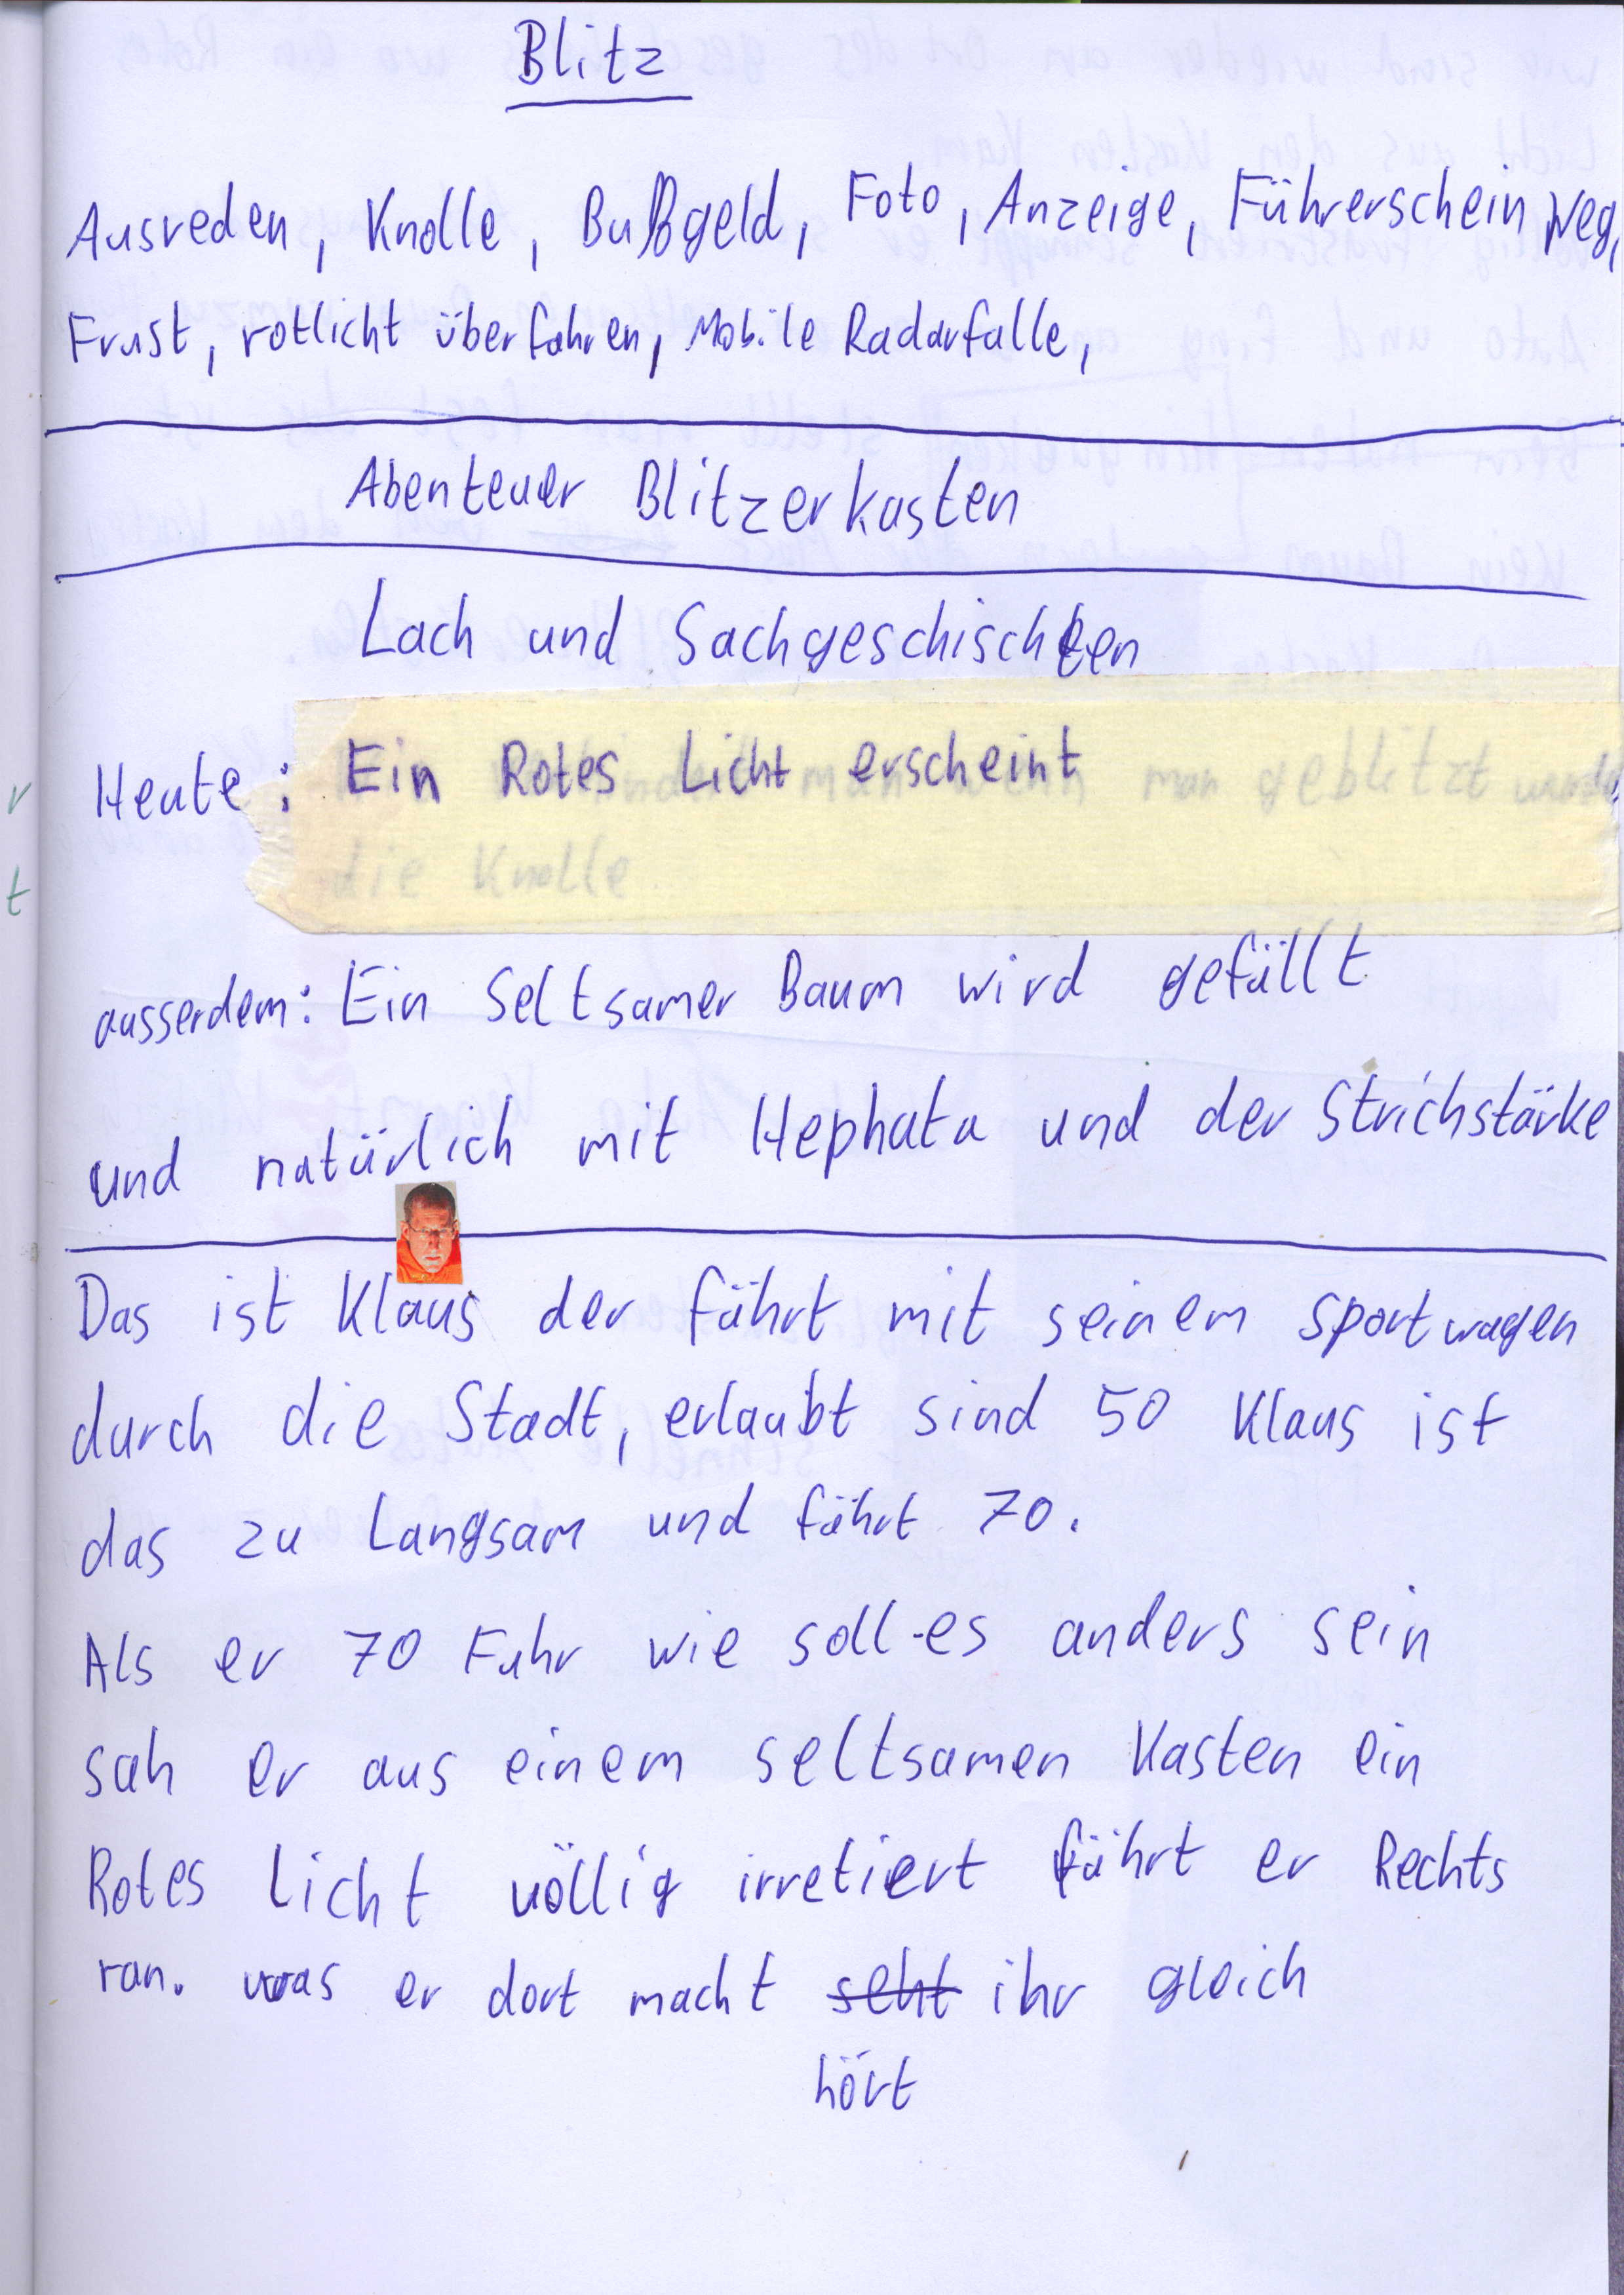 Blitz
Ausreden, Knolle, Bußgeld, Foto, Anzeige, Führerschein weg,
Frust, rotlicht überfahren, Mobile Radarfalle,
Abenteuer Blitzerkasten
Lach und Sachgeschischten
Heute: Ein Rotes Licht erscheint
man geblitzt
die Knolle
ausserdem: Ein Seltsamer Baum wird gefällt
und natürlich mit Hephata und der Strichstärke
Das ist Klaus der fährt mit seinem sportwagen
durch die Stadt, erlaubt sind 50 Klaus ist
das zu Langsam und fährt 70.
Als er 70 Fuhr wie soll es anders sein
sah er aus einem seltsamen Kasten ein
Rotes Licht völlig irretiert fährt er Rechts
ran. was er dort macht seht ihr gleich
hört